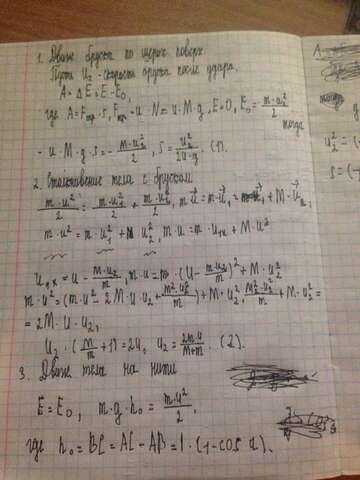 1. Движ бруска по шерох поверх.
Пусть u₂ - скорость бруска после удара.
A = ΔE = E - E₀,
где A = Fтр · s, Fтр = u · N = u · M · g, E = 0, E₀ = m · u₂²/2, тогда
- u · M · g · s = - M · u₂²/2, s = u₂²/2u · g (1).
2. Столкновение тела с бруском
m · u²/2 = m · u₁²/2 + m · u₂²/2, m · u = m · u₁ + M · u₂,
m · u² = m · u₁² + M u₂², m · u = m · u₁ₓ + M · u₂
u₁ₓ = u - M · u₂/m, m · u = m · (u - m · u₂/m)² + M · u₂²
m · u² = (m · u² - 2M · u · u₂ + M² · u₂²/m) + M · u₂², M² · u₂²/m + M · u₂² =
= 2M · u · u₂,
u₂ · (M/m + 1) = 2u, u₂ = 2m · u/M+m. (2).
3. Движ тела на нити
E = E₀, m · g · h₀ = m · u²/2,
где h₀ = BC = AC - AB = l · (1 - cos α).